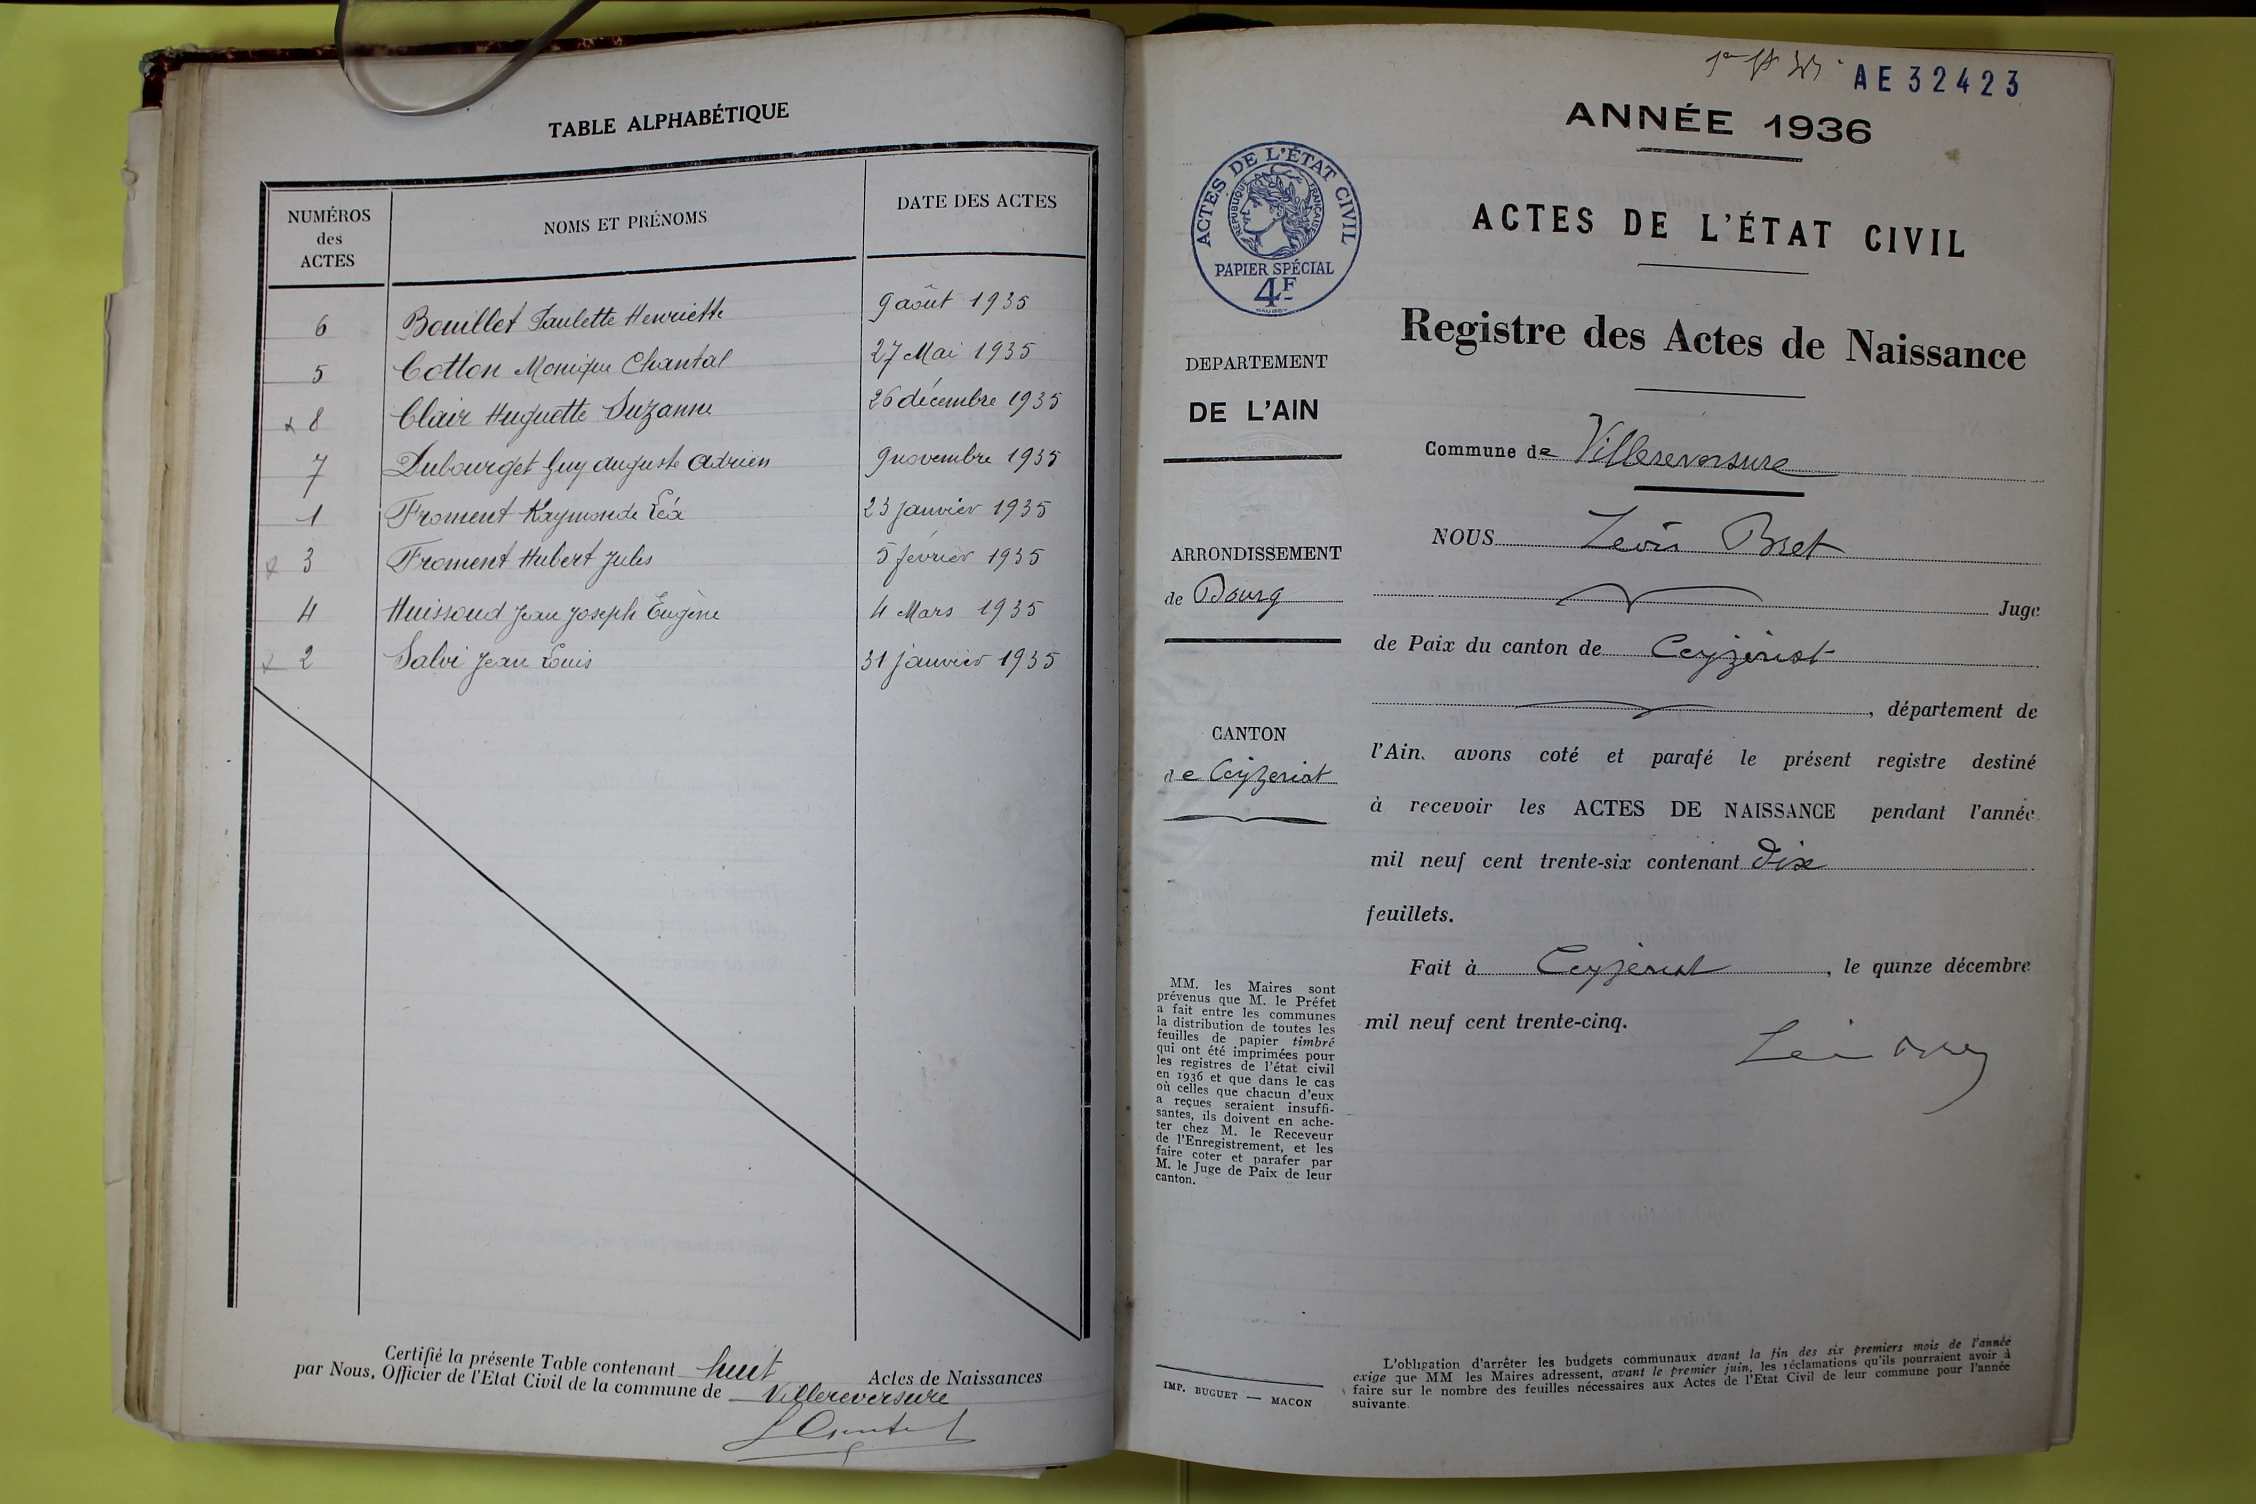 TABLE ALPHABÉTIQUE
NUMÉROS des ACTES NOMS ET PRÉNOMS DATE DES ACTES
6 Bouillet Paulette Henriette 9 août 1935
5 Cotton Monique Chantal 27 Mai 1935
x 8 Clair Huguette Suzanne 26 décembre 1935
7 Dubourget Guy Auguste Adrien 9 novembre 1935
1 Froment Raymonde Léa 23 janvier 1935
x 3 Froment Hubert Jules 5 février 1935
4 Huissoud Jean Joseph Eugène 4 Mars 1935
x 2 Salvi Jean Louis 31 janvier 1935
Certifié la présente Table contenant huit Actes de Naissances
par Nous, Officier de l'Etat Civil de la commune de Villereversure
AE 32423
ANNÉE 1936
ACTES DE L'ÉTAT CIVIL
RÉPUBLIQUE FRANÇAISE
PAPIER SPÉCIAL
4F
ACTES DE L'ÉTAT CIVIL
Registre des Actes de Naissance
DEPARTEMENT
DE L'AIN
ARRONDISSEMENT
de Bourg
CANTON
de Ceyzeriat
MM. les Maires sont
prévenus que M. le Préfet
a fait entre les communes
la distribution de toutes les
feuilles de papier timbré
qui ont été imprimées pour
les registres de l'état civil
en 1936 et que dans le cas
où celles que chacun d'eux
a reçues seraient insuffi-
santes, ils doivent en ache-
ter chez M. le Receveur
de l'Enregistrement, et les
faire coter et parafer par
M. le Juge de Paix de leur
canton.
IMP. BUGUET — MACON
Commune de Villereversure
NOUS Léon Bret
Juge
de Paix du canton de Ceyzériat
, département de
l'Ain. avons coté et parafé le présent registre destiné
à recevoir les ACTES DE NAISSANCE pendant l'année
mil neuf cent trente-six contenant dix
feuillets.
Fait à Ceyzériat, le quinze décembre
mil neuf cent trente-cinq.
L'obligation d'arrêter les budgets communaux avant la fin des six premiers mois de l'année
exige que MM les Maires adressent, avant le premier juin, les réclamations qu'ils pourraient avoir à
faire sur le nombre des feuilles nécessaires aux Actes de l'Etat Civil de leur commune pour l'année
suivante.